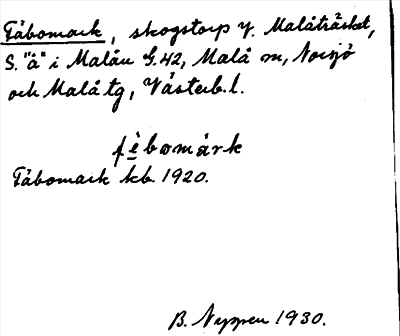 Fäbomark, skogstorp V. Malåträsket,
S. "å" i Malåu G.42, Malå m, Norsjö
och Malå tg, Västerb.l.
fèbomárk
Fäbomark kb. 1920.
B. 1930.